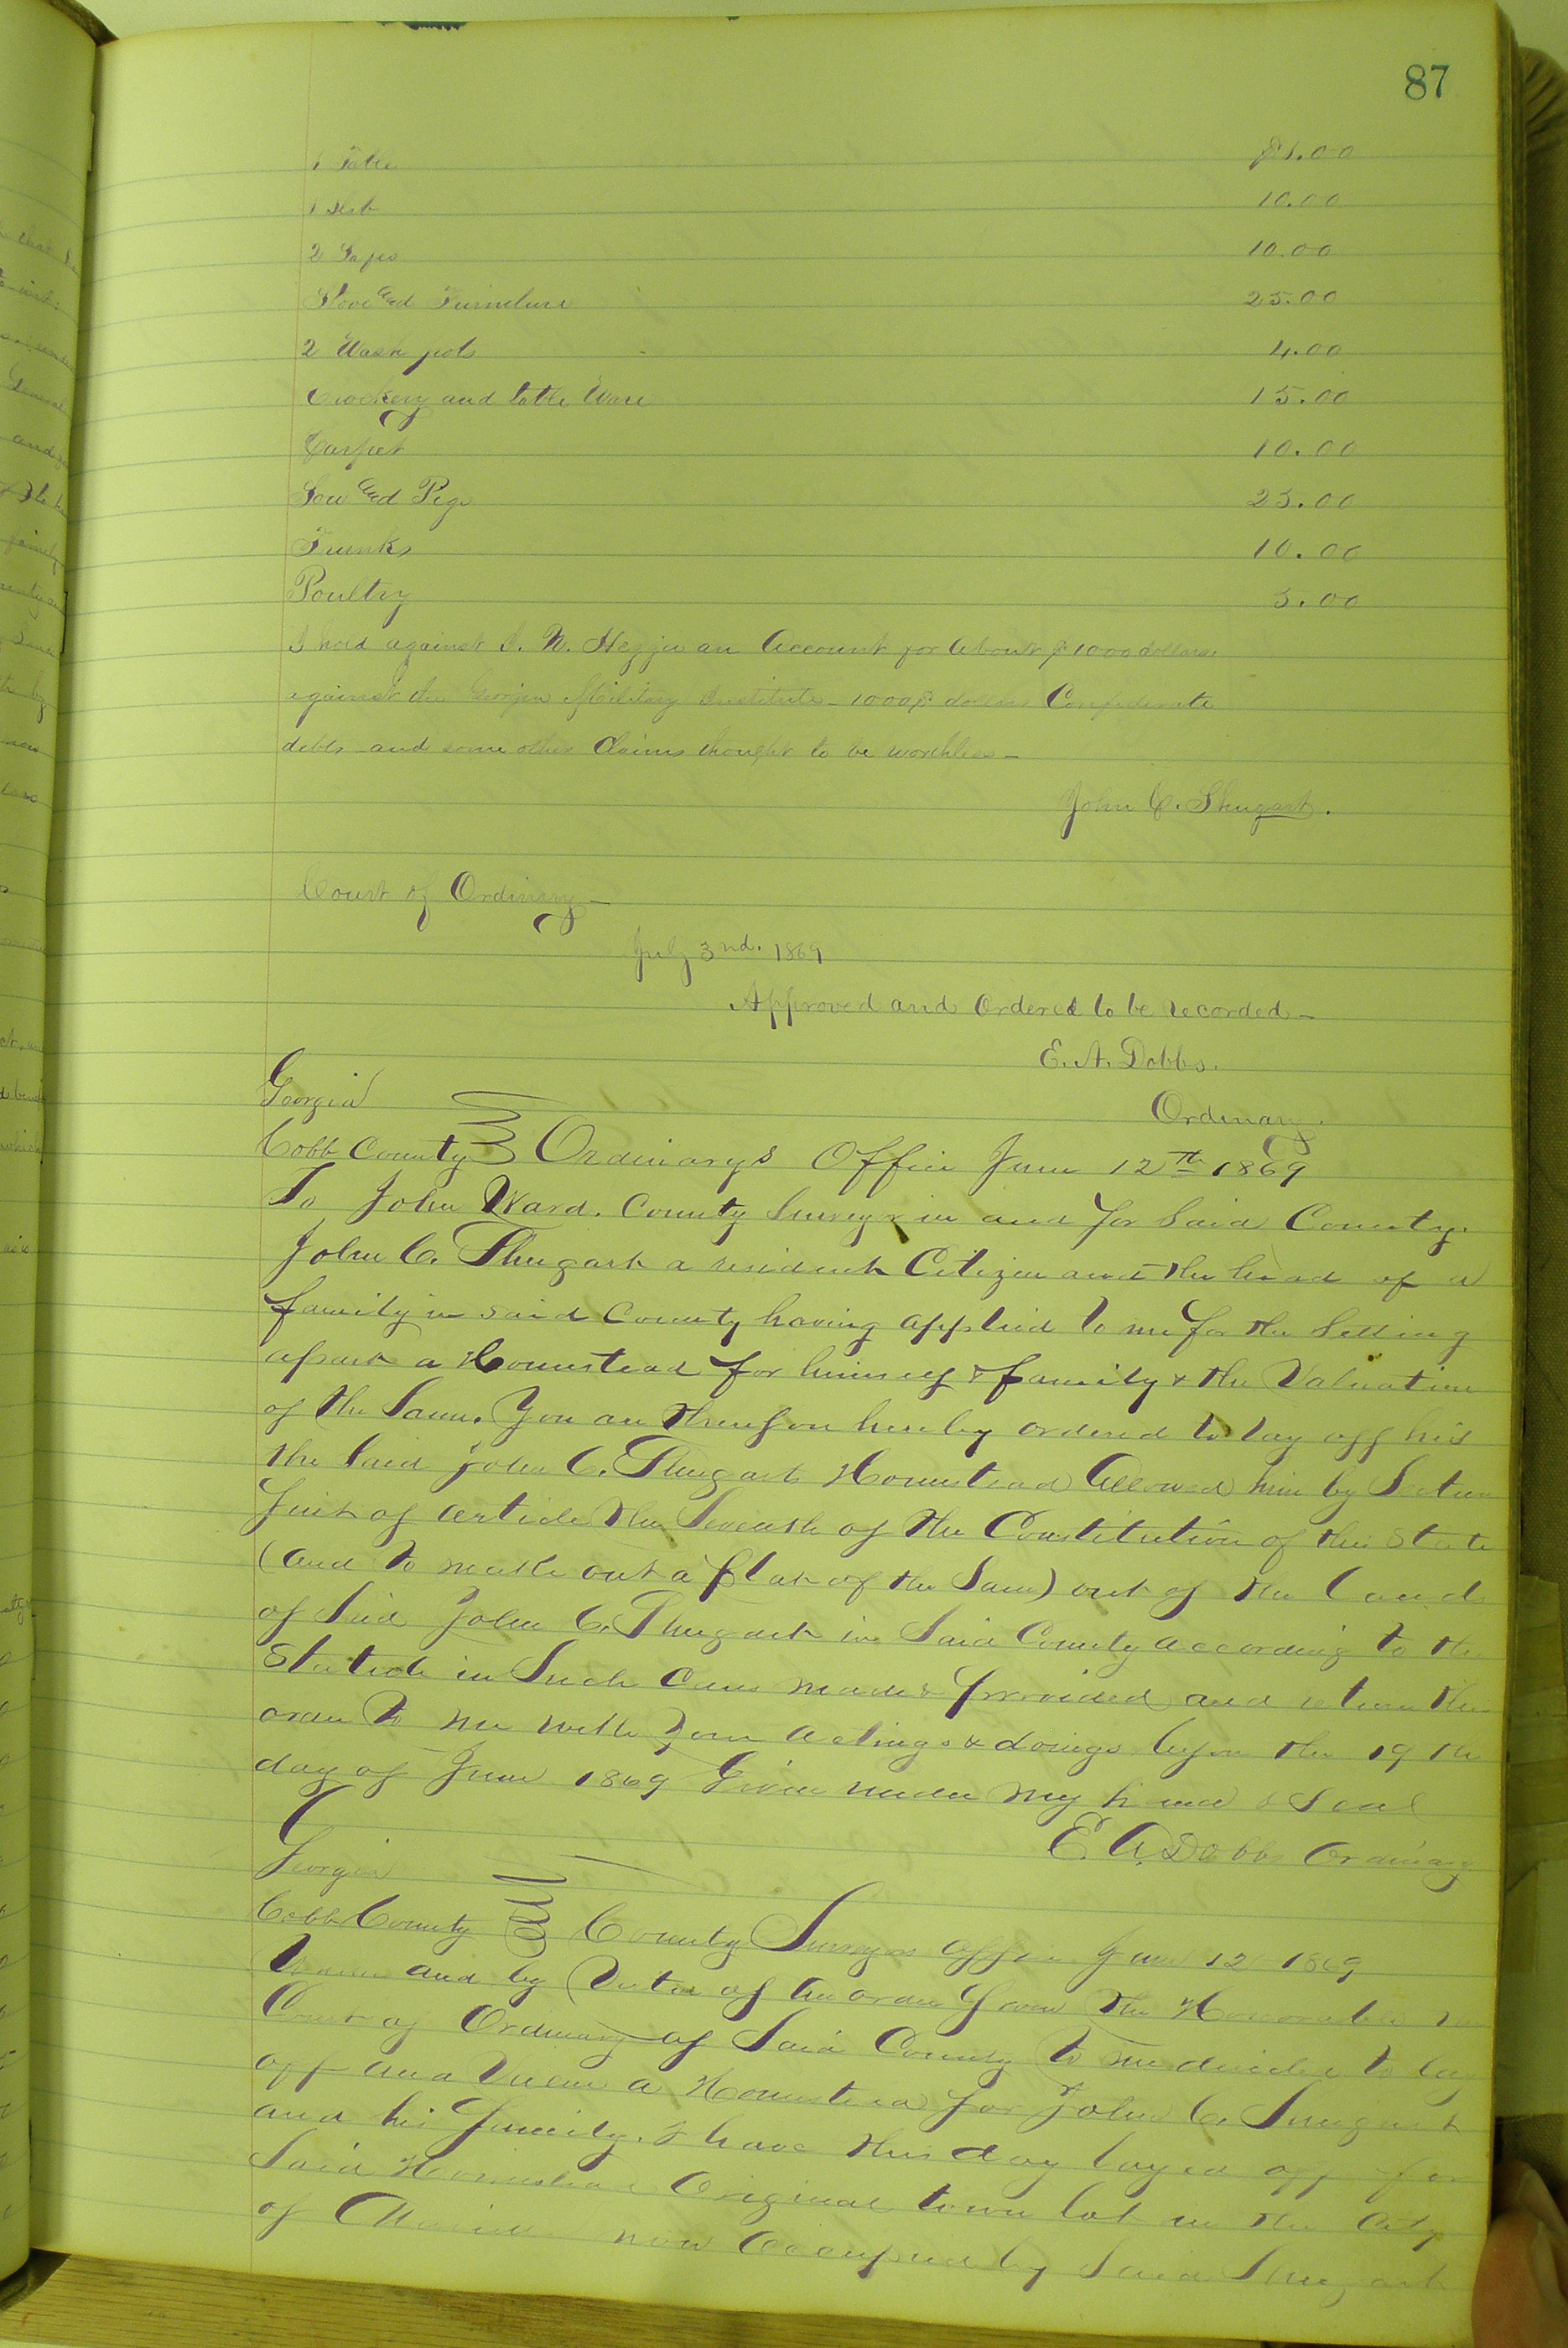 87
1 Table $1.00
1 10.00
2 10.00
Stove and Furneture 25.00
2 Wash pots 4.00
Crockery and table Ware 15.00
Carpet 10.00
Sow and Pigs 25.00
Trunks 10.00
Poultry 5.00
I hold against I. N. Heggie an Account for About $1000 dollars.
against the Georgia Military Institute - 1000$ dollars Confederate
debts and some other Claims thought to be worthless -
John C. Shugart.
Court of Ordinary -
July 3nd. 1869
Approved and Ordered to be recorded -
E. A. Dobbs.
Ordinary.
Georgia
Cobb County Ordinarys Office June 12th 1869
To John Ward. County Surveyor in and for Said County.
John C. Shugart a resident Citizen and the head of a
family in said County having applied to me for the Setting
apart a Homestead for himself & family & the Valuation
of the Same. You are therefore hereby ordered to lay off his
the Said John C. Shugart Homestead Allowed him by Section
First of Article the Seventh of the Constitution of this State
(and to make out a plat of the Same) out of the Lands
of Said John C. Shugart in Said County according to the
Statute in Such Cases made & provided and return this
order to me with your actings & doings before the 19th
day of June 1869 Given under my hand & Seal
E. A. Dobbs Ordinary
Georgia
Cobb County County Surveyors Office June 12 1869
Under and by Virtue of An order from the Honorable
Court of Ordinary of Said County to me directed to lay
off and Value a Homestead for John C. Shugart
and his family. I have this day layed off for
Said Homestead Original town lot in the City
of Marietta now Occupied by Said Shugart